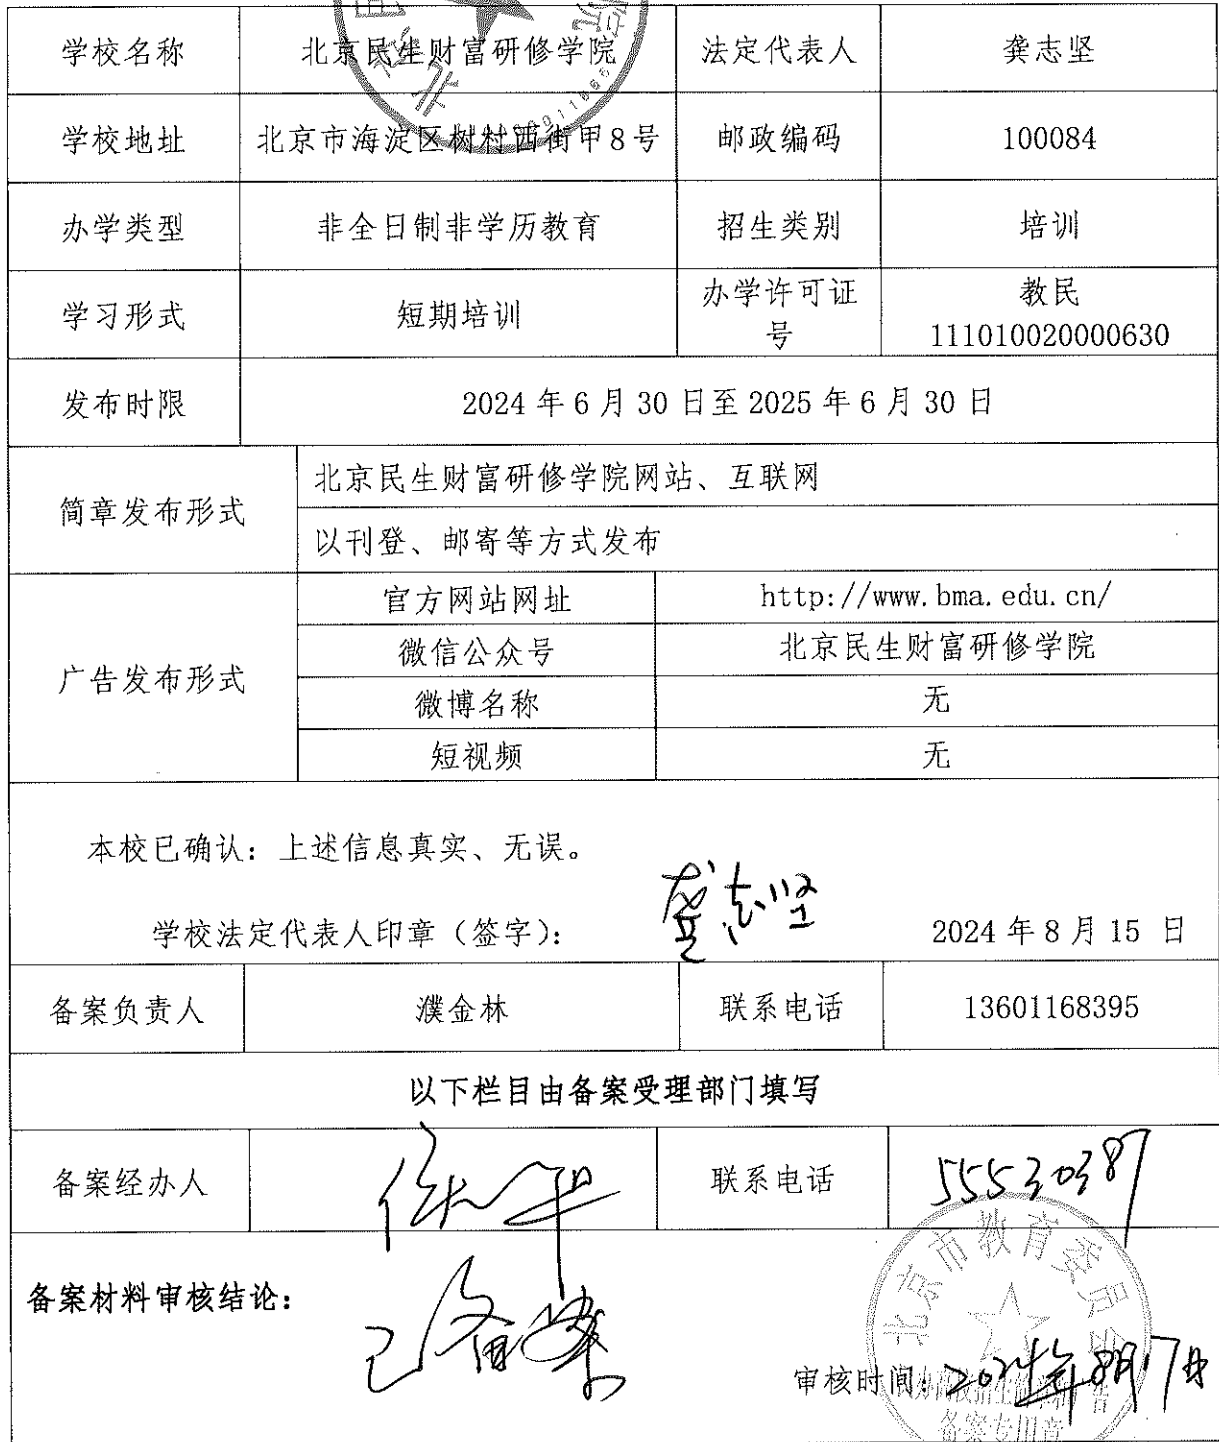 学校名称 北京民生财富研修学院 法定代表人 龚志坚
学校地址 北京市海淀区树村西街甲8号 邮政编码 100084
办学类型 非全日制非学历教育 招生类别 培训
学习形式 短期培训 办学许可证号 教民
111010020000630
发布时限 2024 年 6 月 30 日至 2025 年 6 月 30 日
简章发布形式 北京民生财富研修学院网站、互联网
以刊登、邮寄等方式发布
广告发布形式 官方网站网址 http://www.bma.edu.cn/
微信公众号 北京民生财富研修学院
微博名称 无
短视频 无
本校已确认：上述信息真实、无误。
学校法定代表人印章（签字）： 龚志坚 2024 年 8 月 15 日
备案负责人 濮金林 联系电话 13601168395
以下栏目由备案受理部门填写
备案经办人 联系电话 55530387
北京市教育委员会
备案材料审核结论： 已备案
审核时间：2024年8月17日
备案专用章